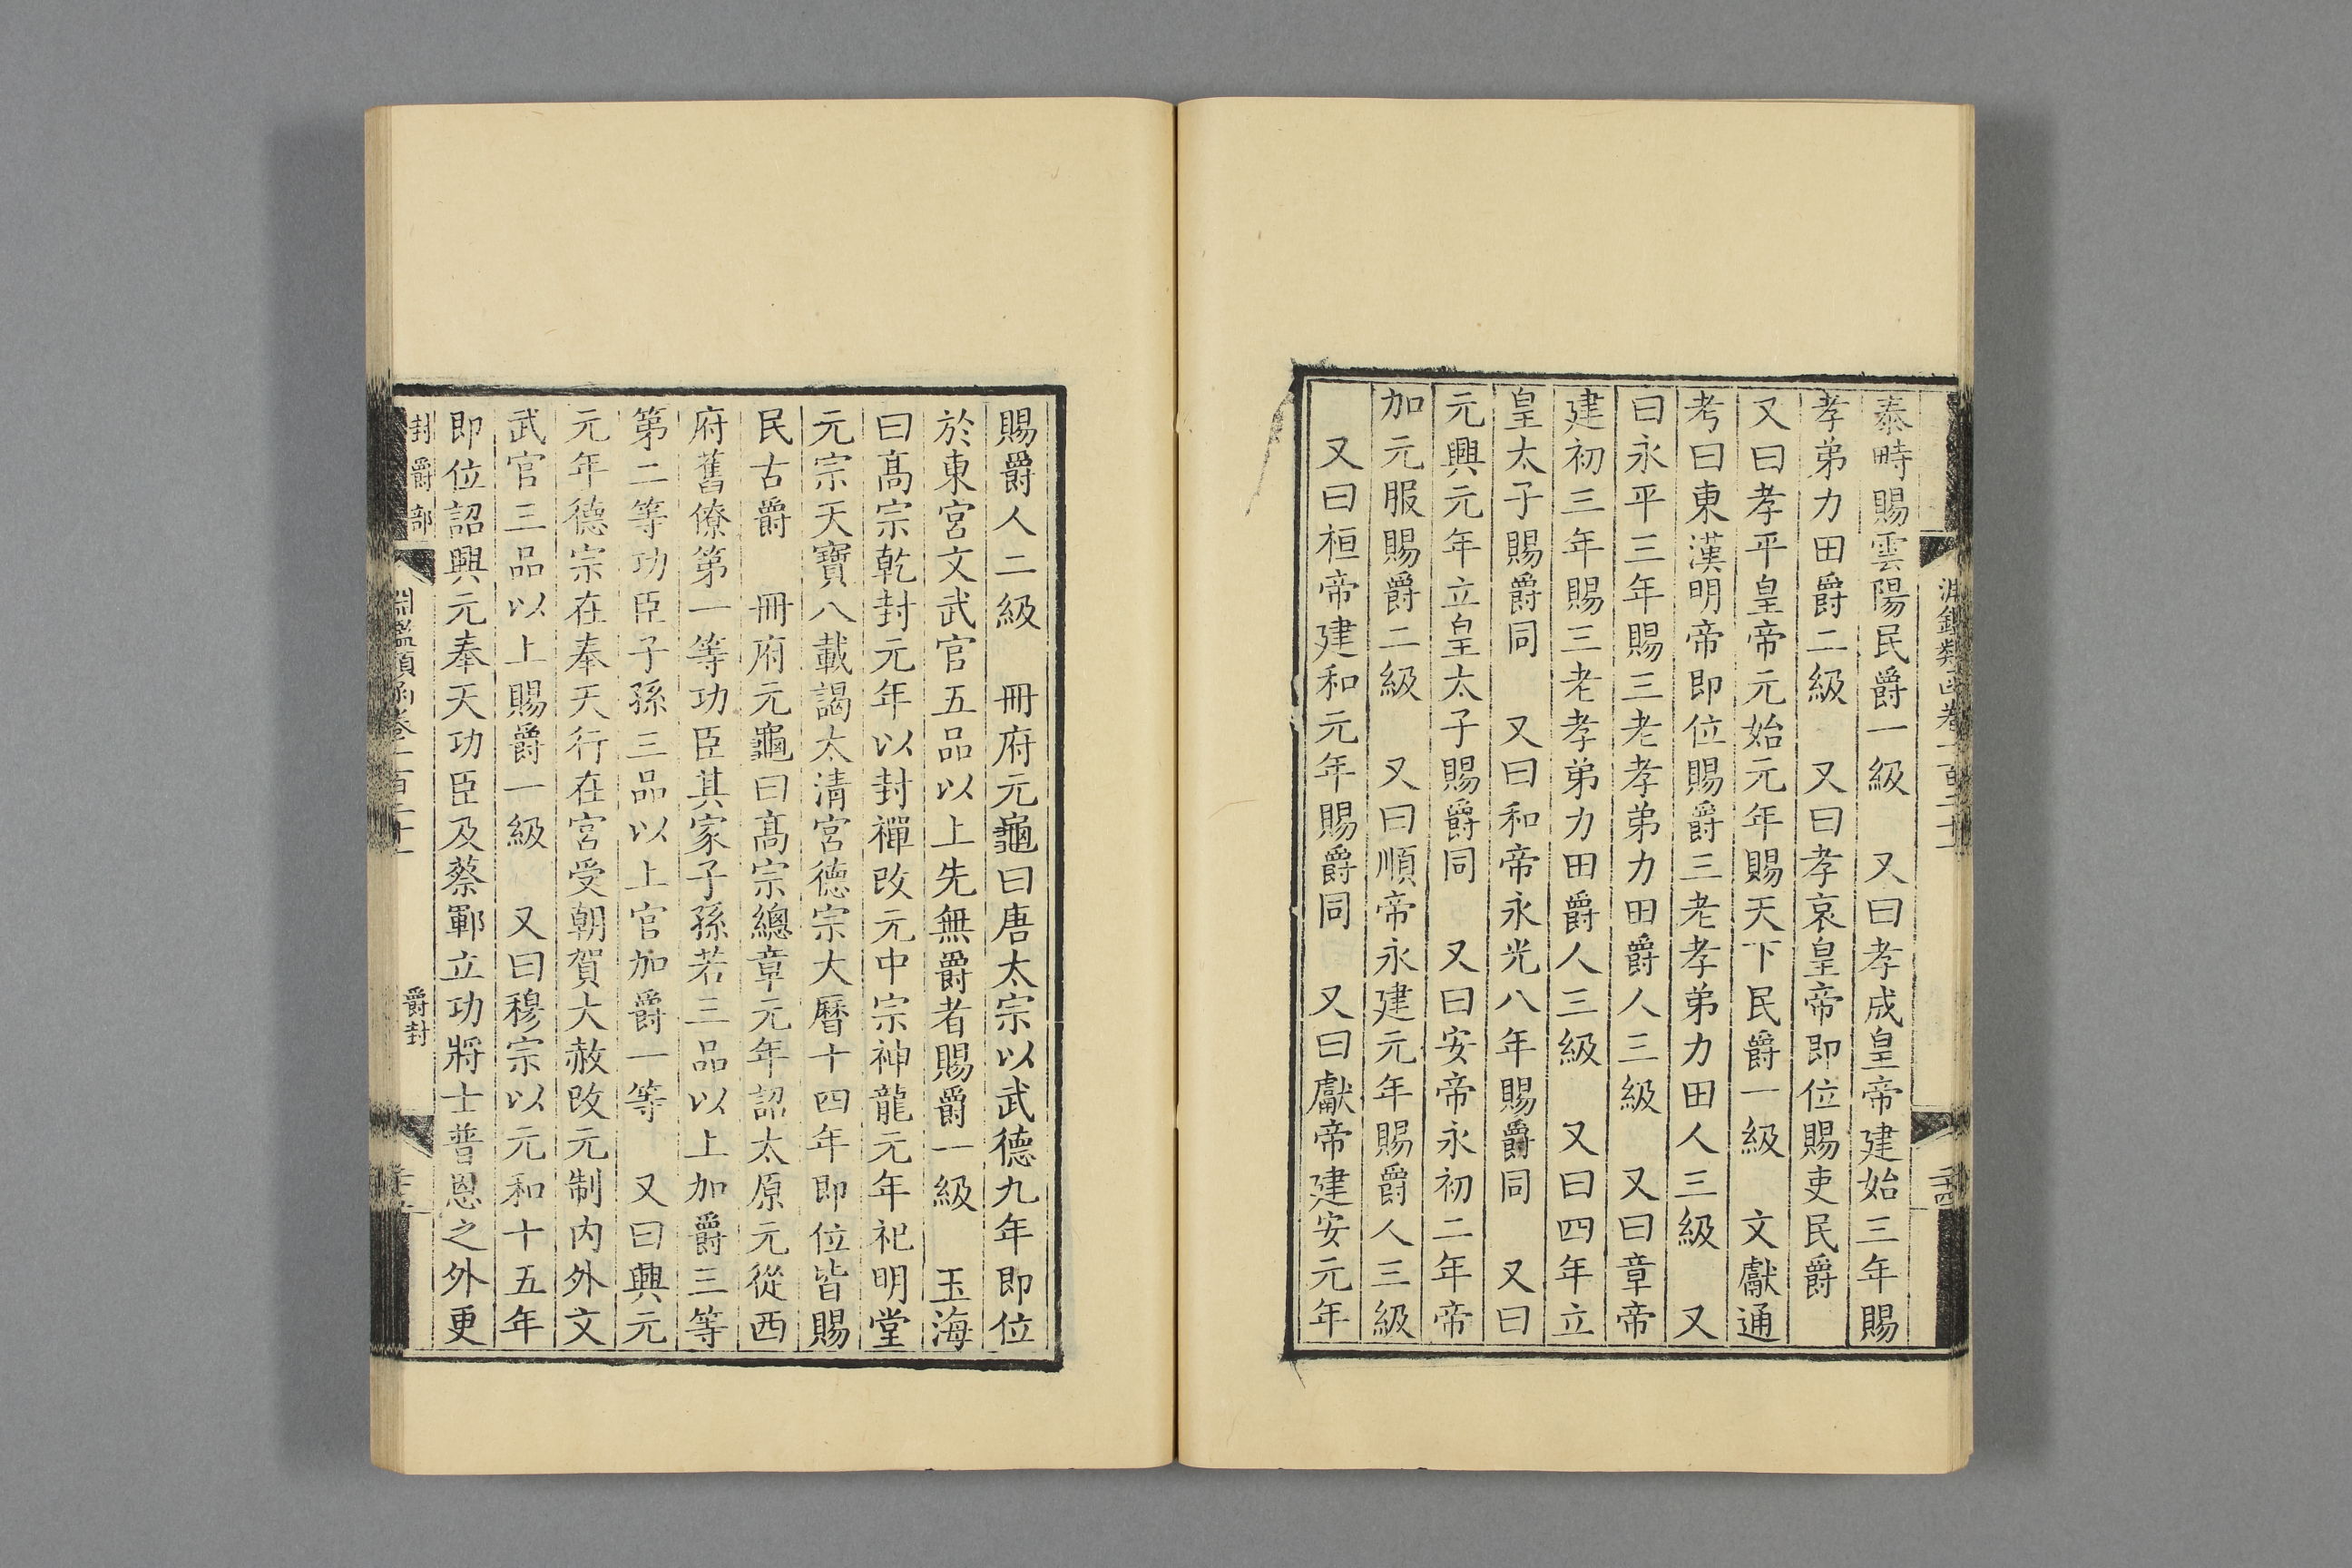 泰畤賜雲陽民爵一級　又曰孝成皇帝建始三年賜
孝弟力田爵二級　又曰孝哀皇帝即位賜吏民爵
又曰孝平皇帝元始元年賜天下民爵一級　文獻通
考曰東漢明帝即位賜爵三老孝弟力田人三級　又
曰永平三年賜三老孝弟力田爵人三級　又曰章帝
建初三年賜三老孝弟力田爵人三級　又曰四年立
皇太子賜爵同　又曰和帝永光八年賜爵同　又曰
元興元年立皇太子賜爵同　又曰安帝永初二年帝
加元服賜爵二級　又曰順帝永建元年賜爵人三級
又曰桓帝建和元年賜爵同　又曰獻帝建安元年
賜爵人二級　冊府元龜曰唐太宗以武德九年即位
於東宮文武官五品以上先無爵者賜爵一級　玉海
曰高宗乾封元年以封禪改元中宗神龍元年祀明堂
元宗天寶八載謁太清宮德宗大曆十四年即位皆賜
民古爵　冊府元龜曰高宗總章元年詔太原元從西
府舊僚第一等功臣其家子孫若三品以上加爵三等
第二等功臣子孫三品以上官加爵一等　又曰興元
元年德宗在奉天行在宮受朝賀大赦改元制內外文
武官三品以上賜爵一級　又曰穆宗以元和十五年
即位詔興元奉天功臣及蔡鄆立功將士普恩之外更
封爵部
爵封